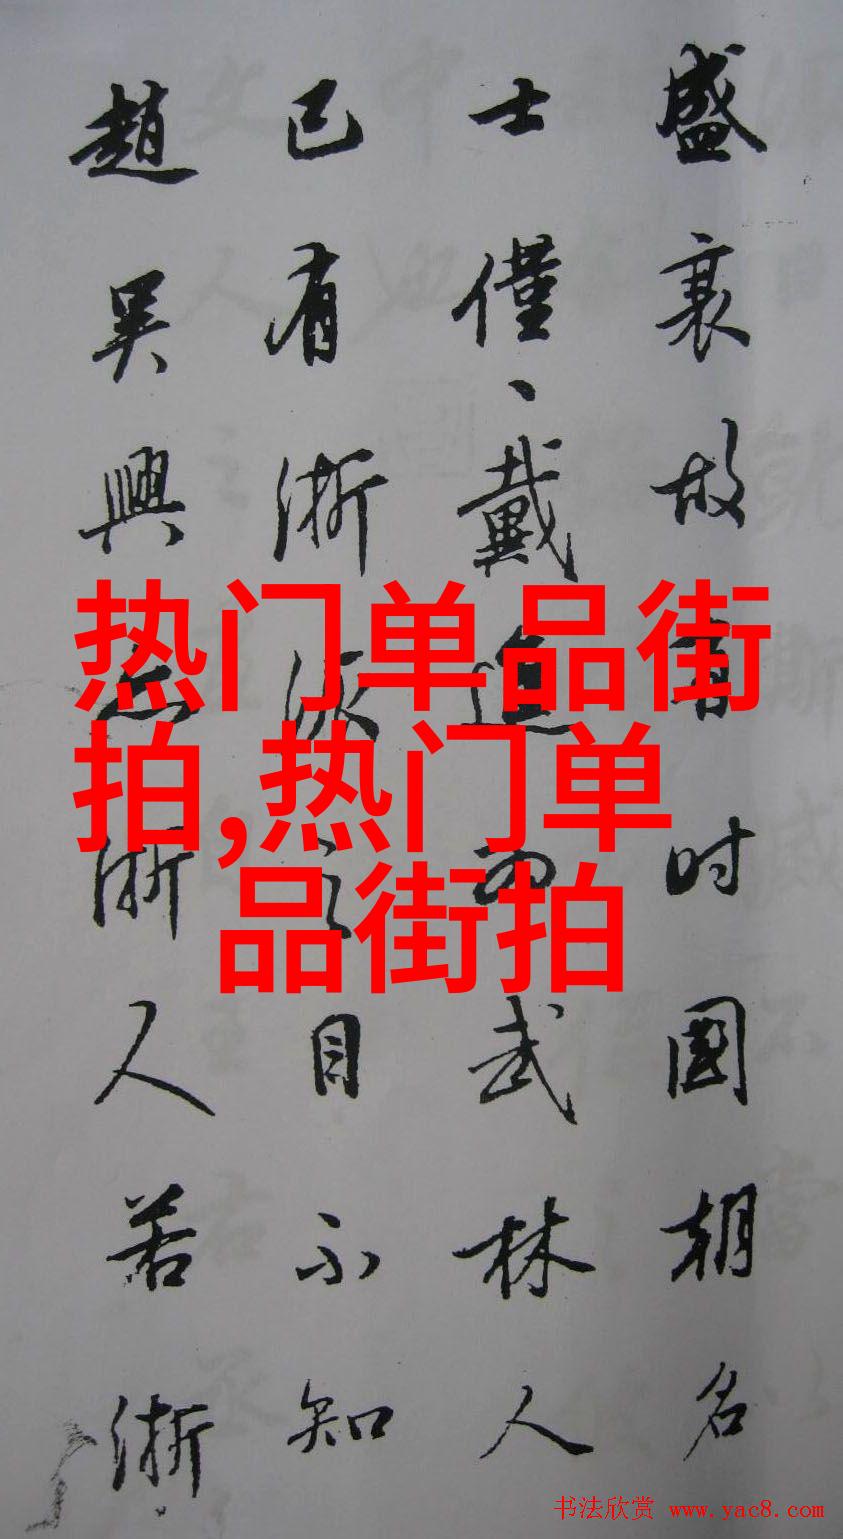 盛衰故有時國朝名
士僅、戴進武林人
已有浙派之目不知
趙吳興亦浙人若浙
热门单品街
拍,热门单
品街拍
书法欣赏 www.yac8.com